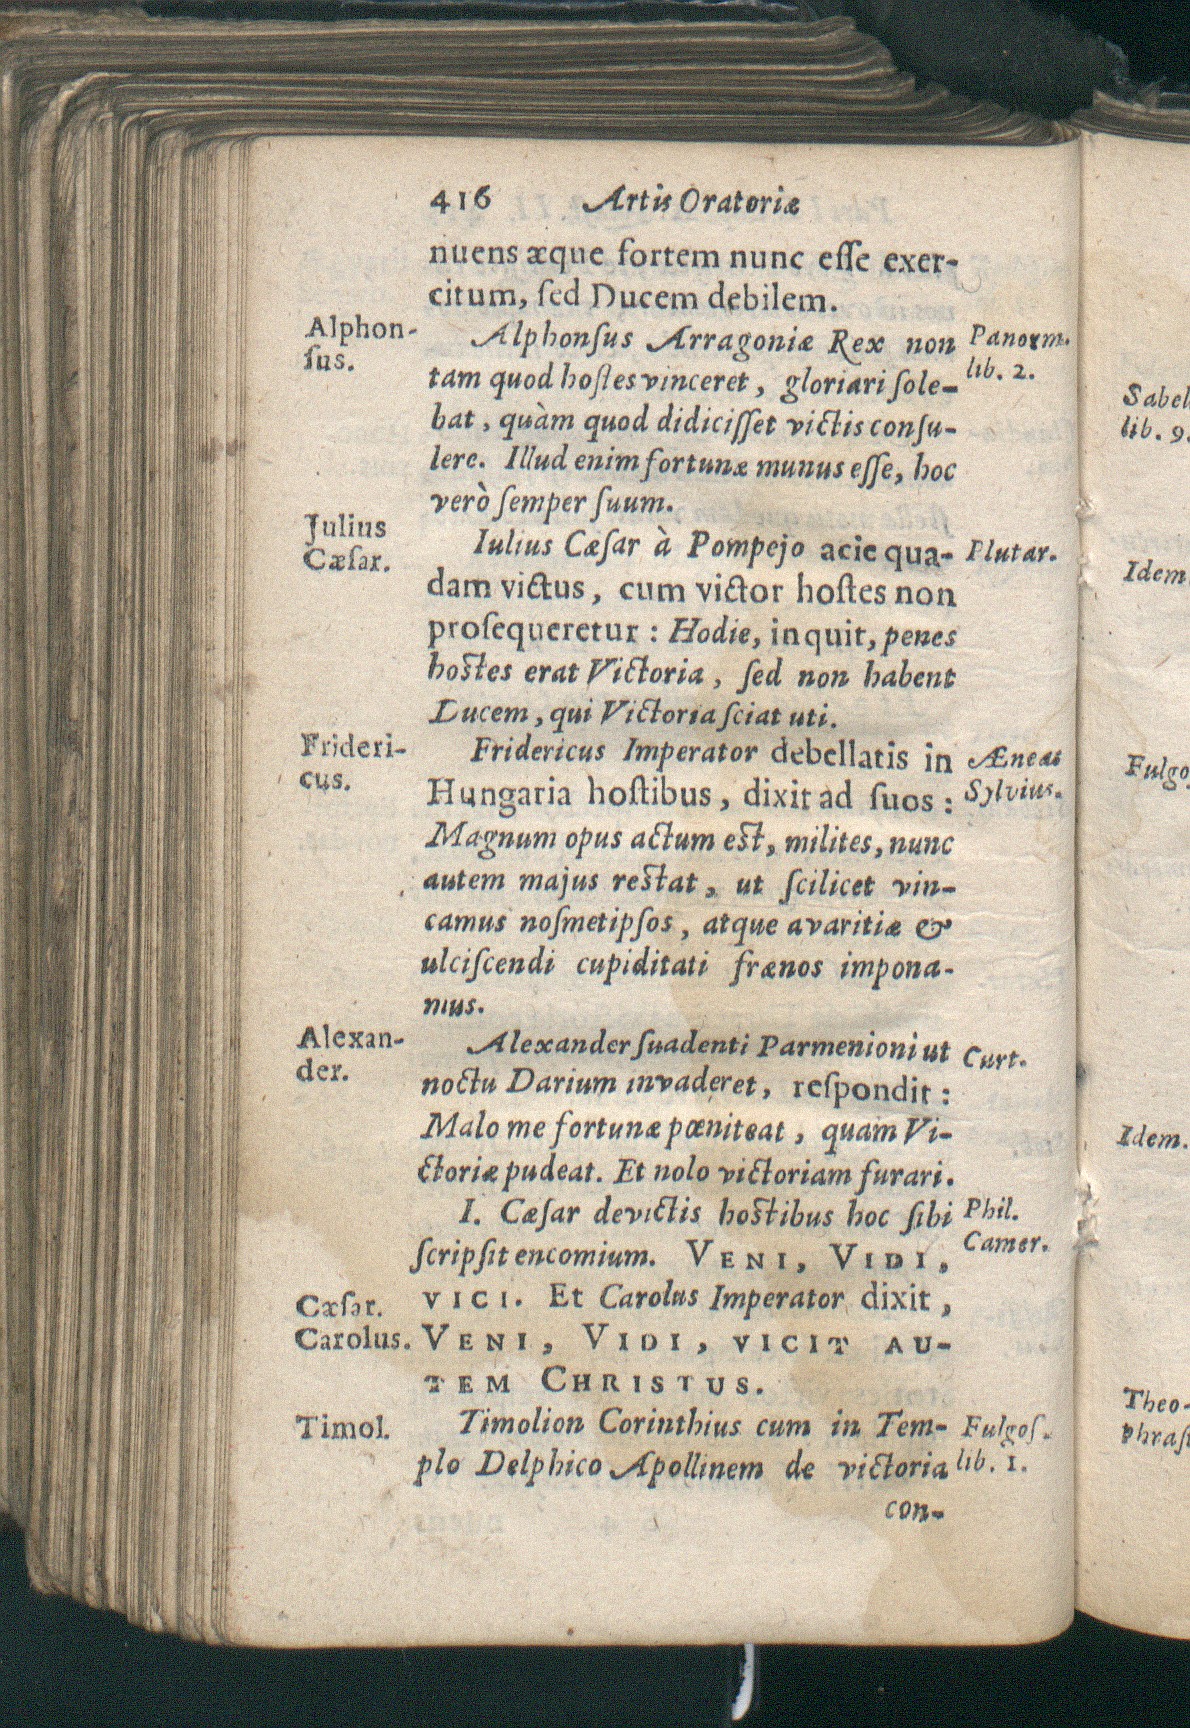 416 Artis Oratoriæ
nuens æque fortem nunc eſſe exer-
citum, ſed Ducem debilem.
Alphon-
ſus.
Alphonſus Arragoniæ Rex non
tam quod hoſtes vinceret, gloriari ſole-
bat, quàm quod didiciſſet victis conſu-
lere. Illud enim fortunæ munus eſſe, hoc
verò ſemper ſuum.
Panorm.
lib. 2.
Julius
Cæſar.
Iulius Cæſar à Pompejo acie qua-
dam victus, cum victor hoſtes non
proſequeretur : Hodie, inquit, penes
hoſtes erat Victoria, ſed non habent
Ducem, qui Victoria ſciat uti.
Plutar.
Frideri-
cus.
Fridericus Imperator debellatis in
Hungaria hoſtibus, dixit ad ſuos :
Magnum opus actum eſt, milites, nunc
autem majus reſtat, ut ſcilicet vin-
camus noſmetipſos, atque avaritiæ &
ulciſcendi cupiditati frænos impona-
mus.
Æneas
Sylvius.
Alexan-
der.
Alexander ſuadenti Parmenioni ut
noctu Darium invaderet, reſpondit :
Malo me fortunæ pœniteat, quam Vi-
ctoriæ pudeat. Et nolo victoriam furari.
Curt.
I. Cæſar devictis hoſtibus hoc ſibi
ſcripſit encomium. VENI, VIDI,
VICI. Et Carolus Imperator dixit,
VENI, VIDI, VICIT AU-
TEM CHRISTUS.
Phil.
Camer.
Cæſar.
Carolus.
Timol.
Timolion Corinthius cum in Tem-
plo Delphico Apollinem de victoria
con-
Fulgoſ.
lib. 1.
Sabel
lib. 9.
Idem
Fulgo
Idem.
Theo-
phraſt